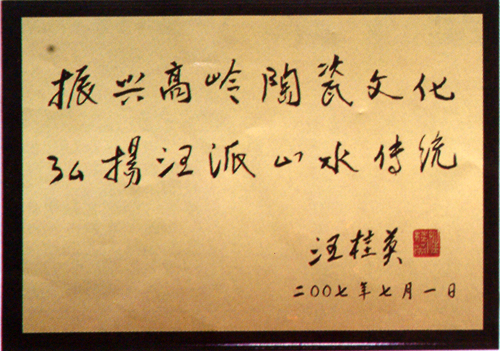 振兴高岭陶瓷文化
弘揚汪派山水传统
汪桂英
二00七年七月一日